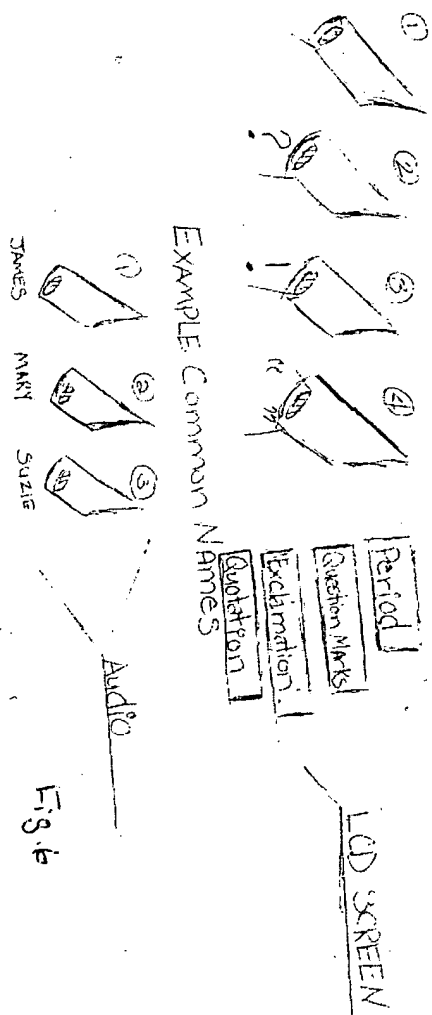 ① ② ③ ④
. ? ! " "
Period
Question Marks
Exclamation
Quotation
LCD SCREEN
EXAMPLE Common NAMES
① ② ③
JAMES MARY SUZIE
Audio
Fig. 6